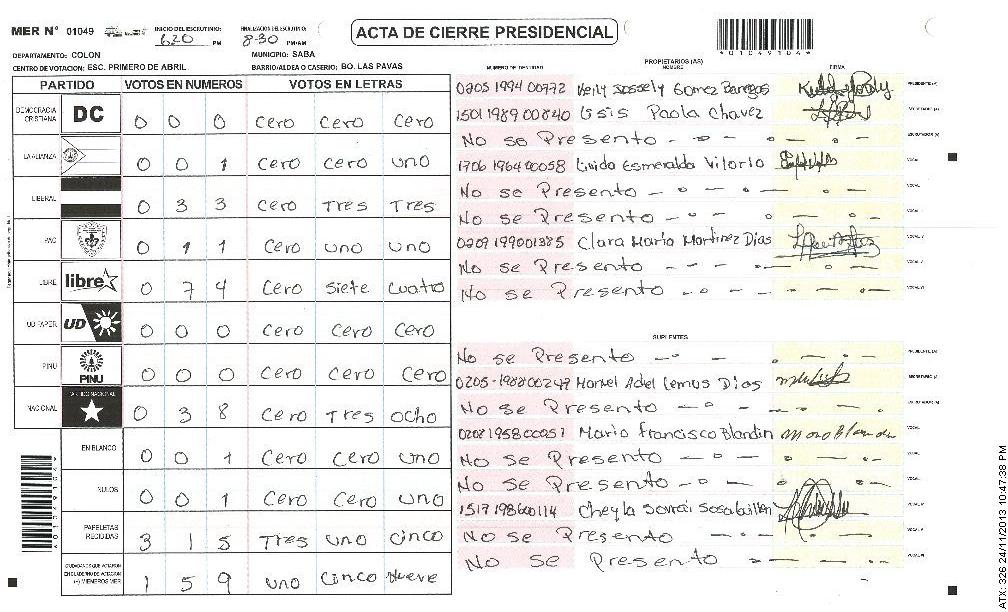 MER N° 01049 INICIO DEL ESCRUTINIO: 6:20 PM FINALIZACION DEL ESCRUTINIO: 8-30 PM/AM
ACTA DE CIERRE PRESIDENCIAL
DEPARTAMENTO: COLON MUNICIPIO: SABA
CENTRO DE VOTACION: ESC. PRIMERO DE ABRIL BARRIO/ALDEA O CASERIO: BO. LAS PAVAS
PARTIDO VOTOS EN NUMEROS VOTOS EN LETRAS
DEMOCRACIA CRISTIANA DC 0 0 0 Cero Cero Cero
LA ALIANZA 0 0 1 Cero Cero uno
LIBERAL 0 3 3 Cero Tres Tres
PAC 0 1 1 Cero uno uno
LIBRE libre 0 7 4 Cero Siete Cuatro
UD FAPER UD 0 0 0 Cero Cero Cero
PINU PINU 0 0 0 Cero Cero Cero
NACIONAL PARTIDO NACIONAL 0 3 8 Cero Tres Ocho
EN BLANCO 0 0 1 Cero Cero uno
NULOS 0 0 1 Cero Cero uno
PAPELETAS RECIBIDAS 3 1 5 Tres uno cinco
CIUDADANOS QUE VOTARON EN CUADERNO DE VOTACION (+) MIEMBROS MER 1 5 9 uno Cinco Nueve
PROPIETARIOS (AS)
NUMERO DE IDENTIDAD NOMBRE FIRMA
0205 1994 00772 Keily Sossely Gomez PRESIDENTE (A)
1501 1989 00840 Isis Paola Chavez SECRETARIO (A)
No se Presento ESCRUTADOR (A)
1706 1964 00058 Esmeralda Vilorio VOCAL
No se Presento VOCAL
No se Presento
0209 199001385 Clara Maria Martinez Dias
No se Presento
No se Presento
SUPLENTES
No se Presento PRESIDENTE (A)
0205-198800247 Manuel Adel Lemus Dias SECRETARIO (A)
No se Presento ESCRUTADOR (A)
0208 1958 00051 Mario Francisco Blandin VOCAL
No se Presento VOCAL
No se Presento
1517 198600114 Cheyla Sarai
No se Presento
No se Presento
ATX: 326 24/11/2013 10:47:38 PM